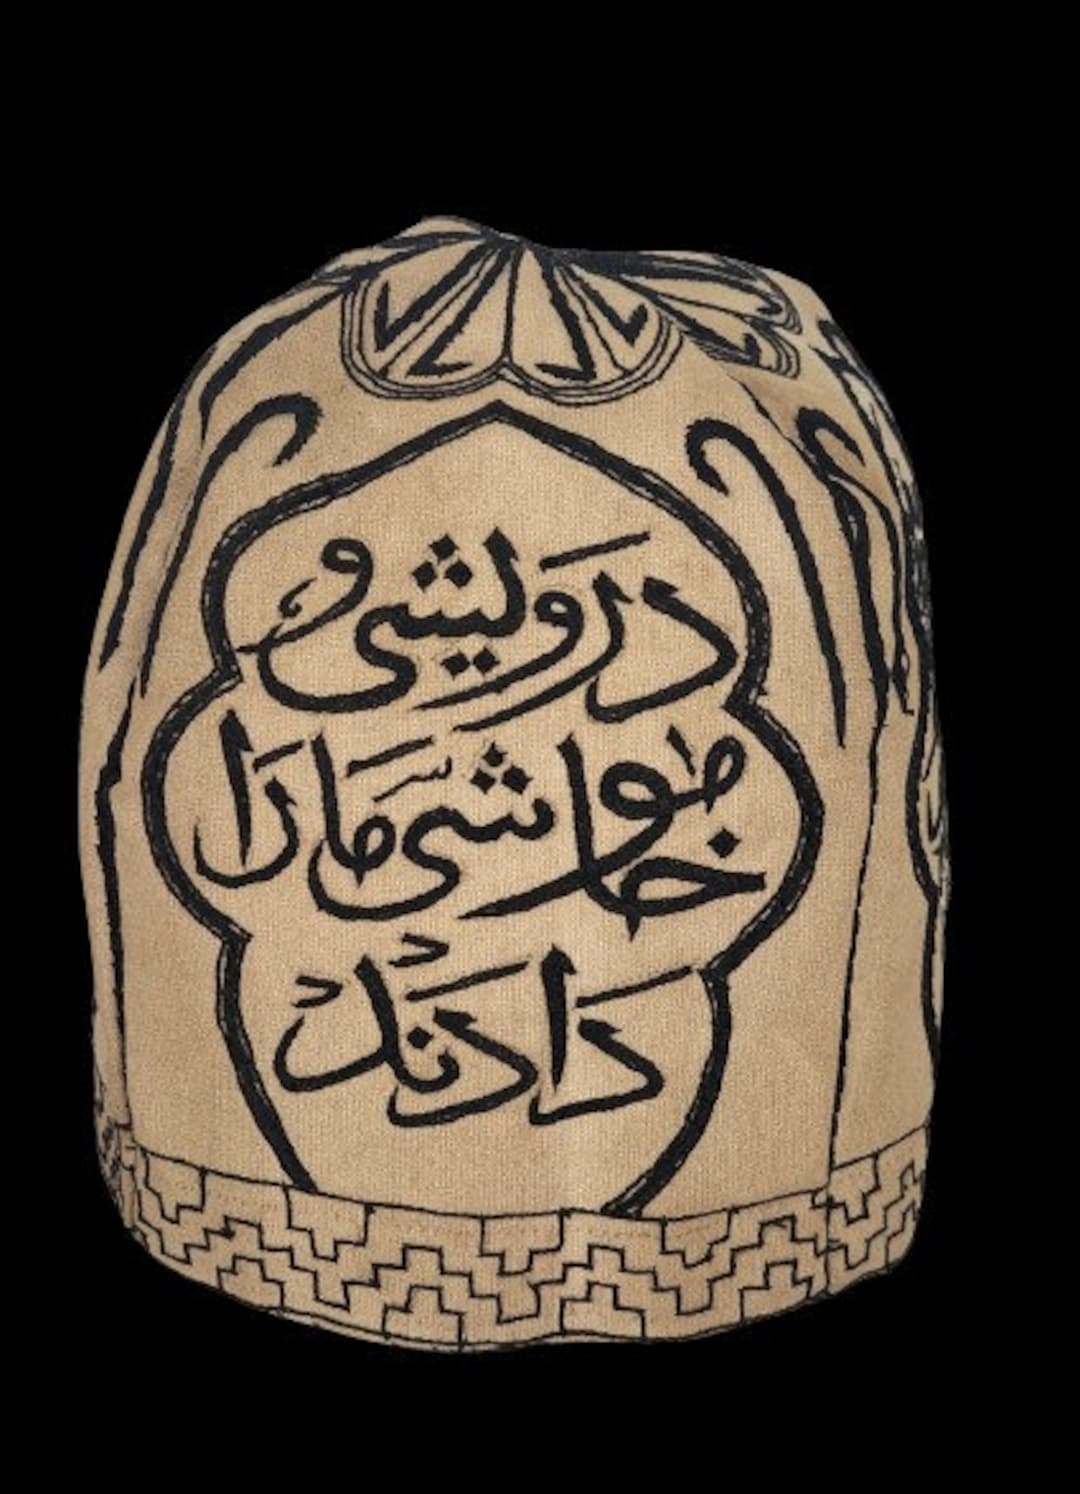 درویشی و
خاموشی ما را
دادند